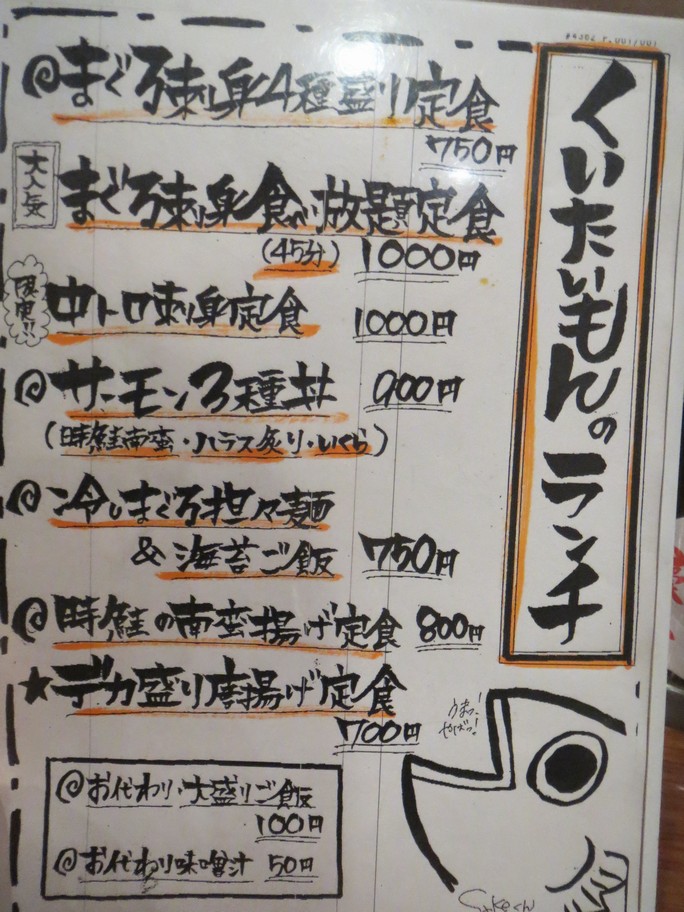 くいたいもんのランチ
@まぐろ刺身4種盛り定食
750円
大人気
まぐろ刺身食べ放題定食
(45分) 1000円
限定!!
中トロ刺身定食 1000円
@サーモン3種丼 900円
(時鮭南蛮・ハラス炙り・いくら)
@冷しまぐろ担々麺
& 海苔ご飯 750円
@時鮭の南蛮揚げ定食 800円
★デカ盛り唐揚げ定食
700円
うまっ!
やばっ!
@お代わり・大盛りご飯
100円
@お代わり味噌汁 50円